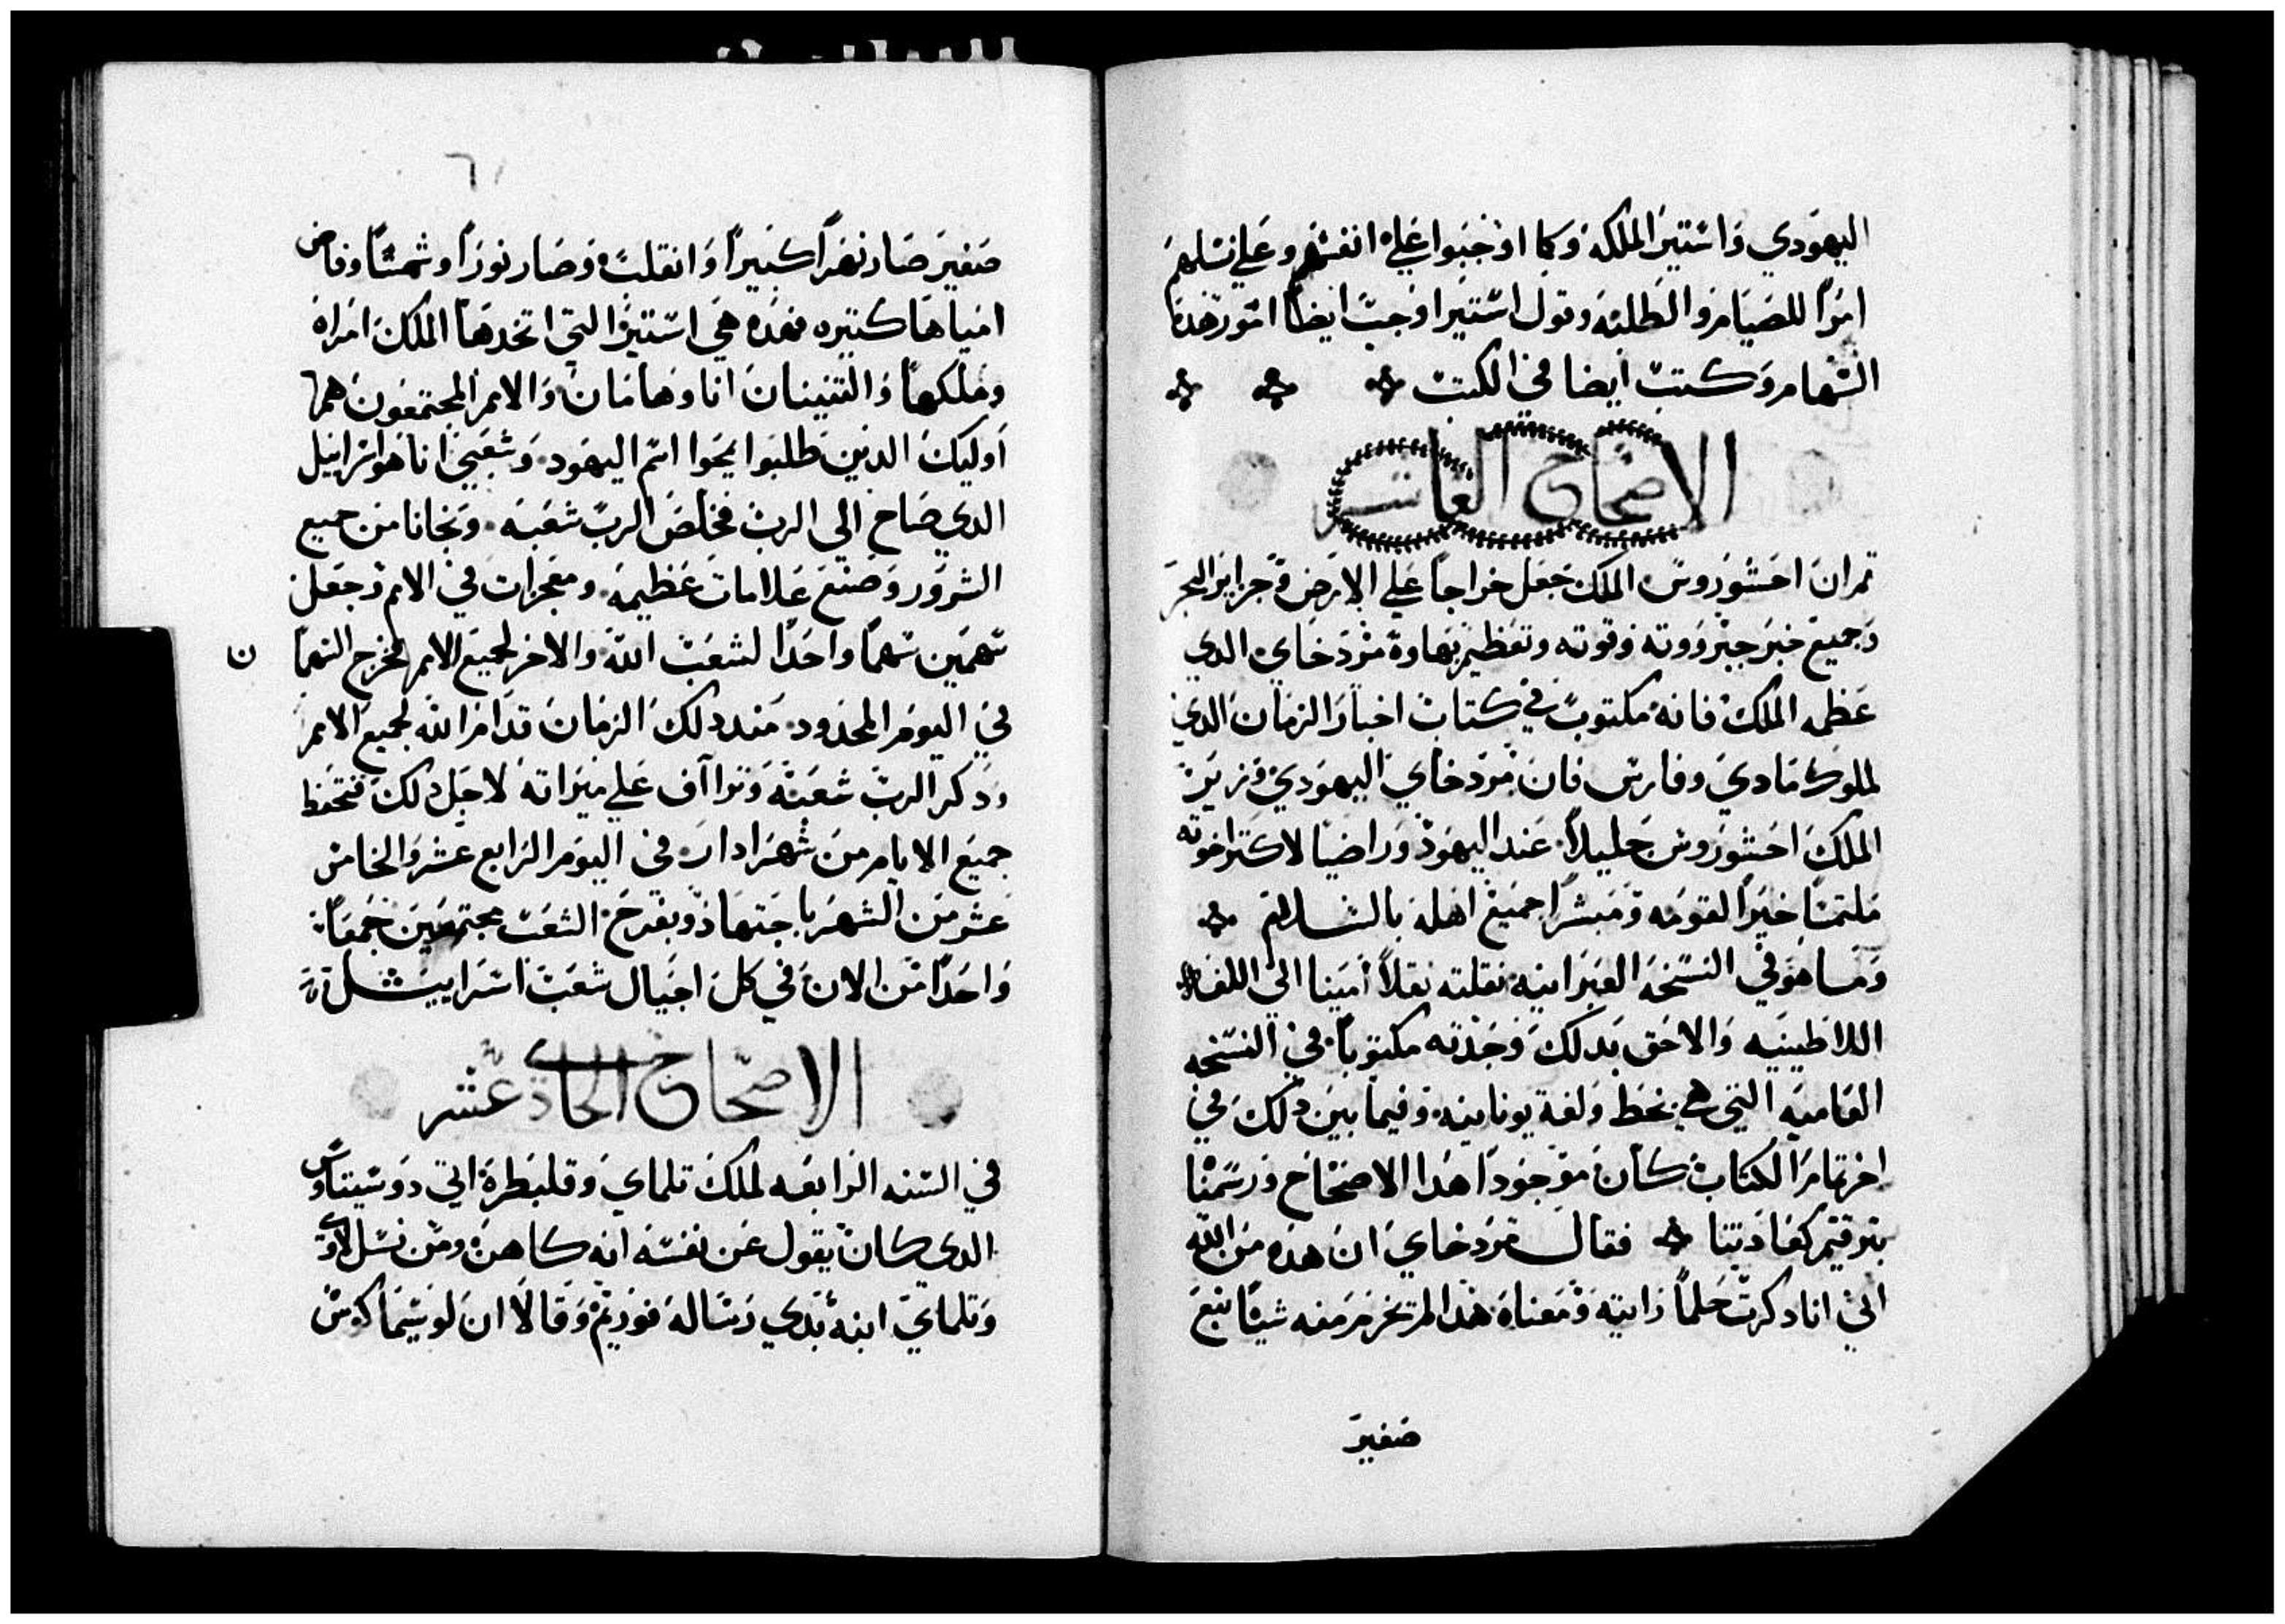 اليهودي واستير الملكه وكما اوجبوا علي انفسهم وعلي نسلهم
امرا للصيام والطلبه وقول استير اوجبت ايضا امور هذا
السهام وكتبت ايضا في الكتب
الاصحاح العاشر
ثم ان احشوروس الملك جعل خراجا علي الارض وجزاير البحر
وجميع خبر جبرووته وقوته وتعظيم بهاوه مردخاي الدي
عظمه الملك فانه مكتوب في كتاب اخبار الزمان الدي
لملوك مادي وفارس فان مردخاي اليهودي
الملك احشوروس جليلا عند اليهود وراضيا لاكتر اخوته
ملتمسا خيرا لقومه ومبشرا جميع اهله بالسلام
وما هو في النسخه العبرانيه نقلته نقلا امينا الي اللغه
اللاطينيه والاحق بدلك وجدته مكتوبا في النسخه
العاميه التي هي بخط ولغة يونانيه وفيما بين دلك في
اخر تمام الكتاب كان موجودا هدا الاصحاح ورسمنا
بترقيم كعادتنا فقال مردخاي ان هده من الله
اني انا دكرت حلما رايته ومعناه هدا لم تخرم منه شيا نبع
صغير
٦١
صغير صار نهرا كبيرا وانقلب وصار نورا وشمسا وفاض
امياها كتيره فهده هي استير التي اتخدها الملك امراه
وملكها والتنينان انا وهامان والامم المجتمعون هم
اوليك الدين طلبوا يمحوا اسم اليهود وشعبي انا هو اسراييل
الدي صاح الي الرب فخلص الرب شعبه ونجانا من جميع
الشرور وصنع علامات عظيمه ومعجزات في الامم وجعل
سهمين سهما واحدا لشعب الله والاخر لجميع الامم فخرج السهما
ن
في اليوم المحدود مند دلك الزمان قدام الله لجميع الامم
ودكر الرب شعبه وتراآف علي ميراته لاجل دلك فتحفظ
جميع الايام من شهر ادار في اليوم الرابع عشر والخامس
عشر من الشهر باجتهاد وبفرح الشعب مجتمعين جمعا
واحدا من الان في كل اجيال شعب اسراييل
الاصحاح الحادي عشر
في السنه الرابعه لملك تلماي وقلبطرة اتي دوسيتاوس
الدي كان يقول عن نفسه انه كاهن ومن نسل لاوي
وتلماي ابنه بدي رساله فوريم وقالا ان لوسيماكوس